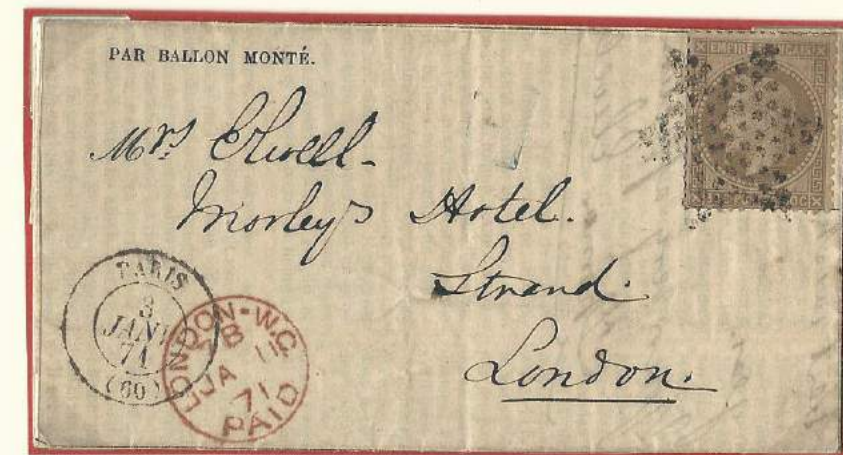 PAR BALLON MONTÉ.
EMPIRE FRANÇAIS
Mrs
Morley's Hotel.
Strand.
London.
PARIS
3
JANV
71
(60)
LONDON-W.C
7B
JA 11
71
PAID